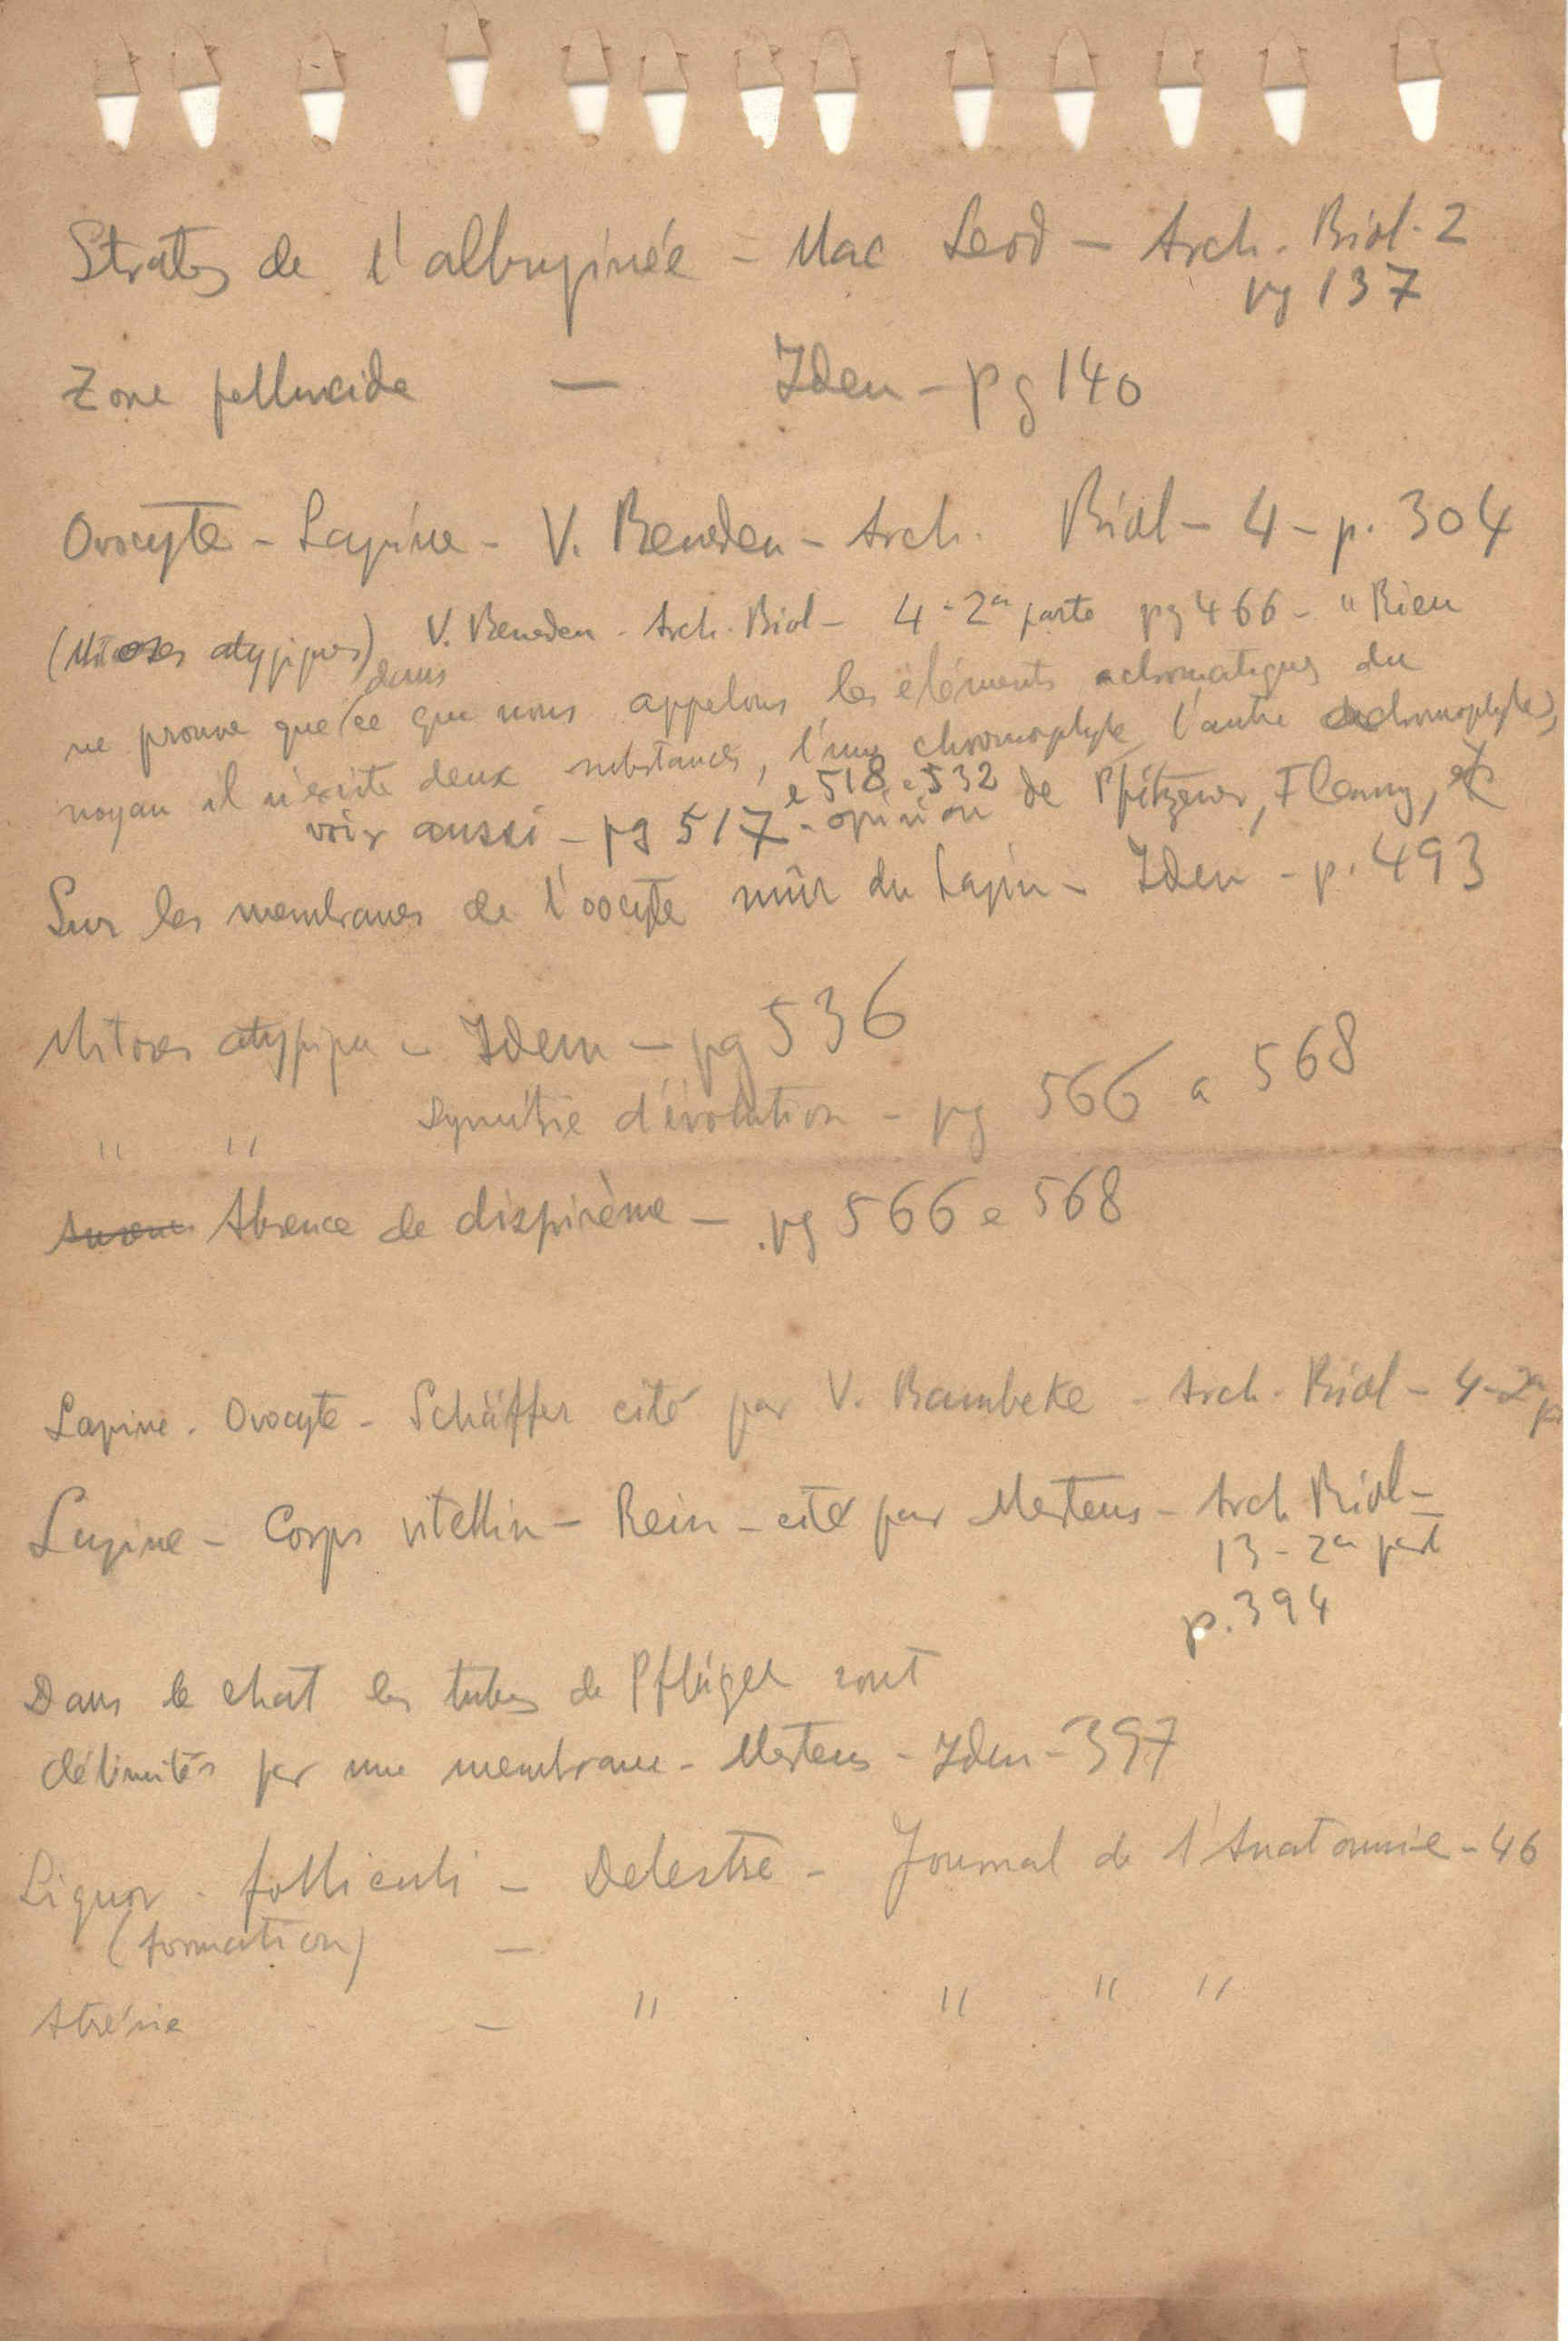 Strates de l'albuginée = Mac Leod - Arch. Biol. 2
pg 137
Zone pellucide — Idem - pg 140
Ovocyte - Lapine - V. Beneden - Arch. Biol - 4 - p. 304
(Mitoses atypiques) V. Beneden - Arch. Biol - 4 - 2a parte pg 466 - "Rien
ne prouve que dans ce que nous appelons les éléments achromatiques du
noyau il n'existe deux substances, l'une chromophyle l'autre achromophyle",
voir aussi - pg 517 e 518 e 532 - opinion de Pfitzner, Flemmg, etc
Sur les membranes de l'oocyte mûr du Lapin - Idem - p. 493
Mitoses atypiques - Idem - pg 536
" " Symétrie d'évolution - pg 566 a 568
Absence de dispirème - pg 566 e 568
Lapine - Ovocyte - Schäffer cité par V. Bambeke - Arch. Biol - 4 - 2a p
Lapine - Corps vitellin - Rein - cité par Mertens - Arch Biol -
13 - 2a part
p. 394
Dans le chat les tubes de Pflüger sont
délimités par une membrane - Mertens - Idem - 397
Liquor folliculi - Delestre - Journal de l'Anatomie - 46
(formation) —
Atrésie - " " " "